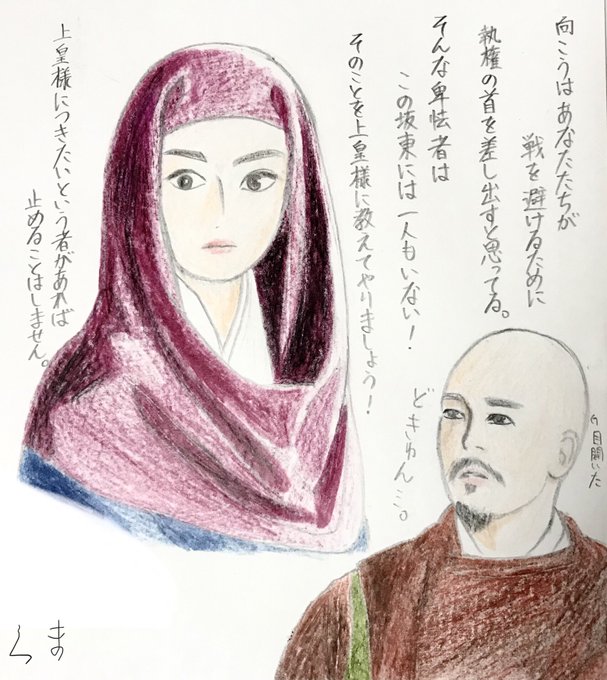 向こうはあなたたちが
戦を避けるために
執権の首を差し出すと思ってる。
そんな卑怯者は
この坂東には一人もいない!
そのことを上皇様に教えてやりましょう!
上皇様につきたいという者があれば
止めることはしません。
どきゅん…。
目開いた
くま